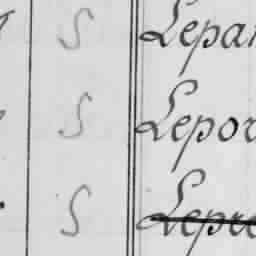 S Lepar
S Lepor
S Lepre